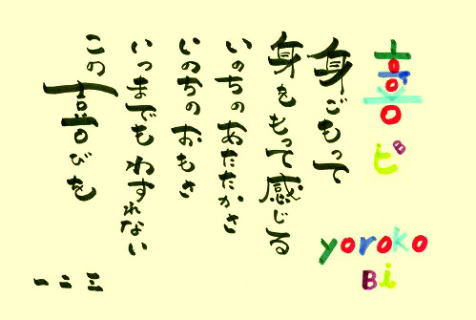 喜ビ
yoroko
Bi
身ごもって
身をもって感じる
いのちのあたたかさ
いのちのおもさ
いつまでもわすれない
この喜びを
一二三